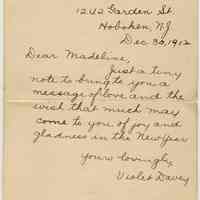 1242 Garden St.
Hoboken, N.J.
Dec 30, 1912
Dear Madeline,
Just a tiny
note to bring to you a
message of love and the
wish that much may
come to you of joy and
gladness in the New Year
Yours lovingly,
Violet Davey